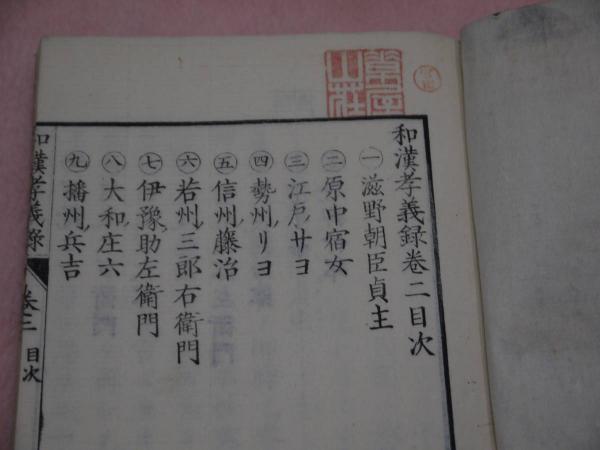 和漢孝義録卷二目次
㊀滋野朝臣貞主
㊁原中宿女
㊂江戸、サヨ
㊃勢州、リヨ
㊄信州、藤治
㊅若州、三郎右衛門
㊆伊豫、助左衛門
㊇大和、庄六
㊈播州、兵吉
和漢孝義錄 卷二 目次